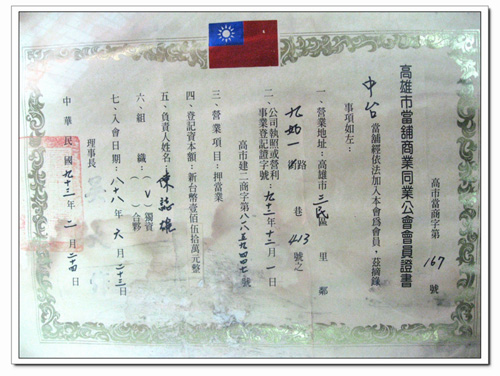 高雄市當舖商業同業公會會員證書
高市當商字第 167 號
中台 當舖經依法加入本會為會員,茲摘錄
事項如左:
一、營業地址:高雄市三民區 里 鄰
九如一 路 巷 413 號之
二、公司執照或營利
事業登記證字號:九十三年十二月一日
高市建二商字第 號
三、營業項目:押當業
四、登記資本額:新台幣壹佰伍拾萬元整
五、負責人姓名:陳
六、組織:(V)獨資
( )合夥
七、入會日期:八十八年六月二十三日
理事長
中華民國九十三年二月二十四日